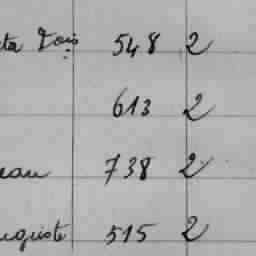 ta Vois 548 2
613 2
eau 738 2
uguste 515 2